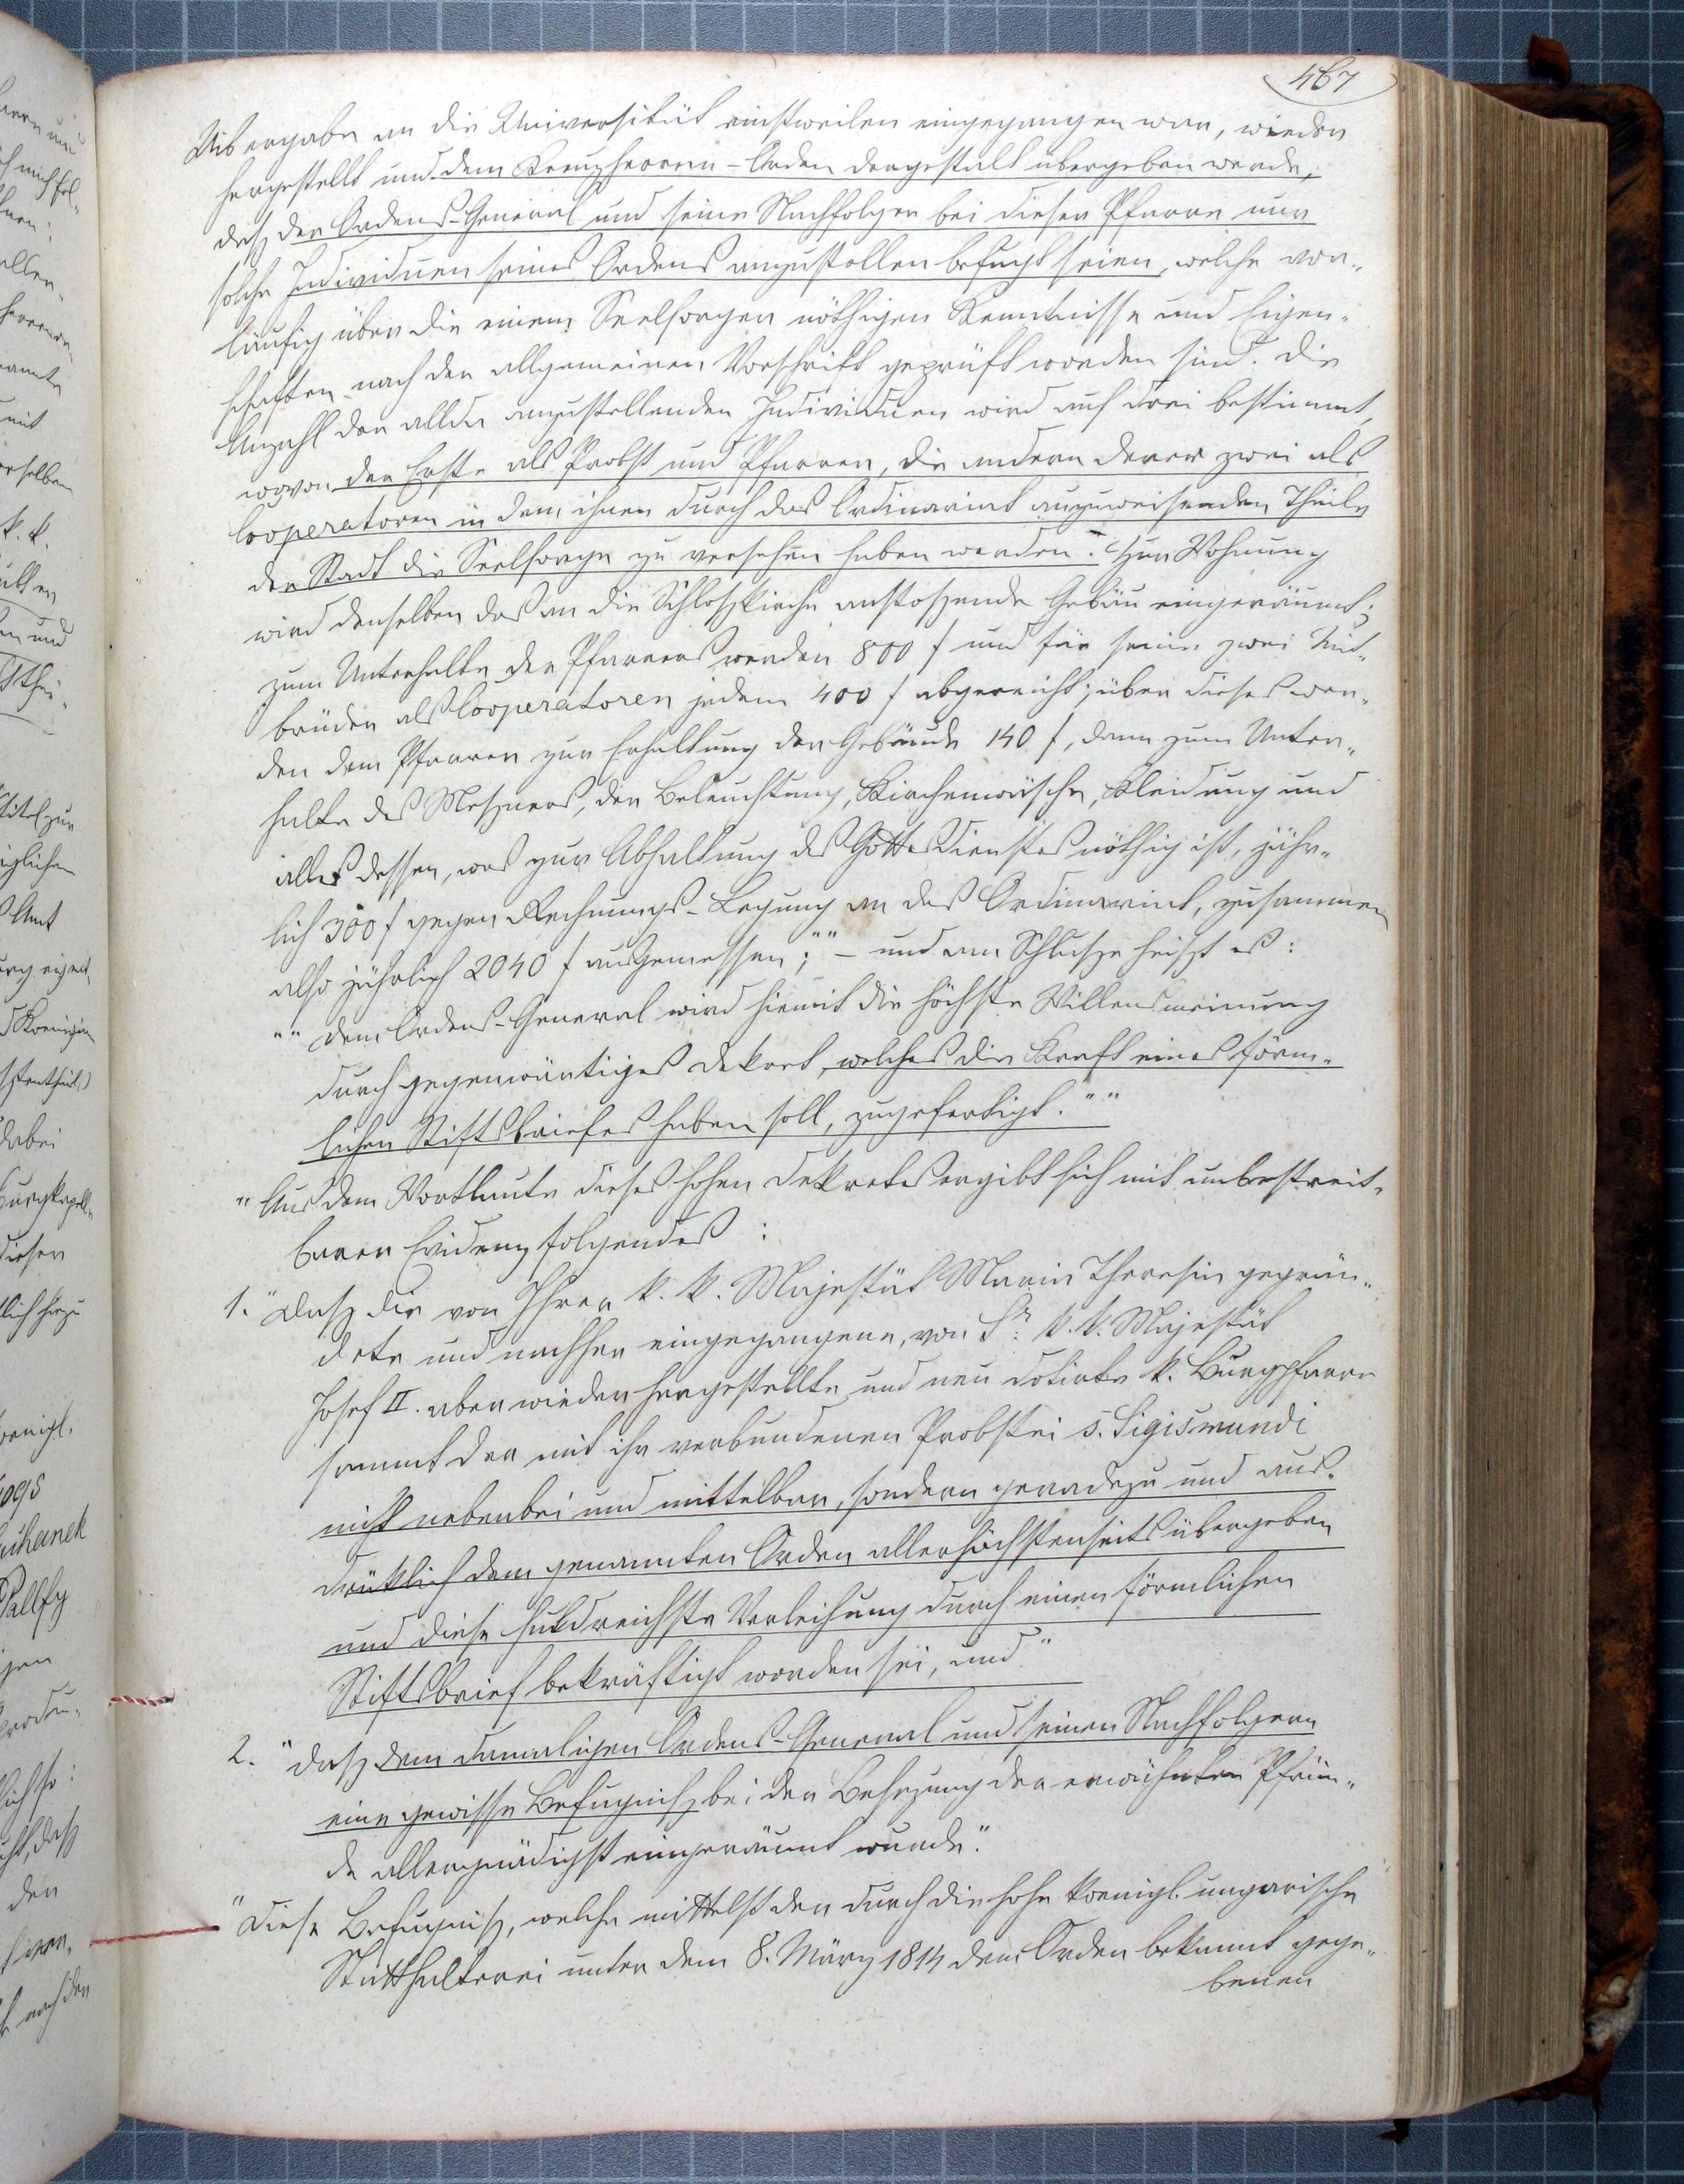 467
Uibergabe an die Universität einstweilen eingegangen war, wieder
hergestellt und dem Kreuzherren-Orden dergestalt übergeben werde,
daß der Ordens-General und seine Nachfolger bei dieser Pfarre nur
solche Individuen seines Ordens anzustellen befugt seien, welche vor„
läufig über die einem Seelsorger nöthigen Kenntnisse und Eigen„
schaften nach der allgemeinen Vorschrift geprüft worden sind. Die
Anzahl der allda anzustellenden Individuen wird auf drei bestimmt,
wovon der Erste als Probst und Pfarrer, die andern derer zwei als
Cooperatoren in dem ihnen durch das Ordinariat anzuweisenden Theile
der Stadt die Seelsorge zu versehen haben werden. Zur Wohnung
wird denselben das an die Schloßkirche anstoßende Gebäu eingeräumt;
zum Unterhalte des Pfarrers werden 800 f und für seine zwei Mit„
brüder als Cooperatoren jedem 400 f abgereicht; über dieses wer„
den dem Pfarrer zur Erhaltung der Gebäude 140 f, dann zum Unter„
halte des Meßners, der Beleuchtung, Kirchenwäsche, Kleidung und
alles dessen, was zur Abhaltung des Gottesdienstes nöthig ist, jähr„
lich 300 f gegen Rechnungs-Legung an das Ordinariat, zusammen
also jährlich 2040 f ausgemessen;"" – und am Schluße heißt es:
"" Dem Ordens-General wird hiemit die höchste Willensmeinung
durch gegenwärtiges Dekret, welches die Kraft eines förm„
lichen Stiftsbriefes haben soll, zugefertigt.""
"Aus dem Wortlaute dieses hohen Dekretes ergibt sich mit unbestreit„
barer Evidenz folgendes:
1. "Daß die von Ihrer k. k. Majestät Maria Theresia gegrün„
dete und nachher eingegangene, von Sr. k. k. Majestät
Josef II. aber wieder hergestellte und neu dotirte k. Burgpfarre
sammt der mit ihr verbundenen Probstei S. Sigismundi
nicht nebenbei und mittelbar, sondern geradezu und aus„
drüklich dem genannten Orden allerhöchstenseits übergeben
und diese huldreichste Verleihung durch einen förmlichen
Stiftsbrief bekräftigt worden sei, und"
2. "daß dem damaligen Ordens-General und seinen Nachfolgern
eine gewisse Befugniß bei der Besezung der erwähnten Pfrün„
de allergnädigst eingeräumt wurde."
"Diese Befugniß, welche mittelst der durch die hohe koenigl. ungarische
Statthalterei unter dem 8. März 1814 dem Orden bekannt gege„
benen